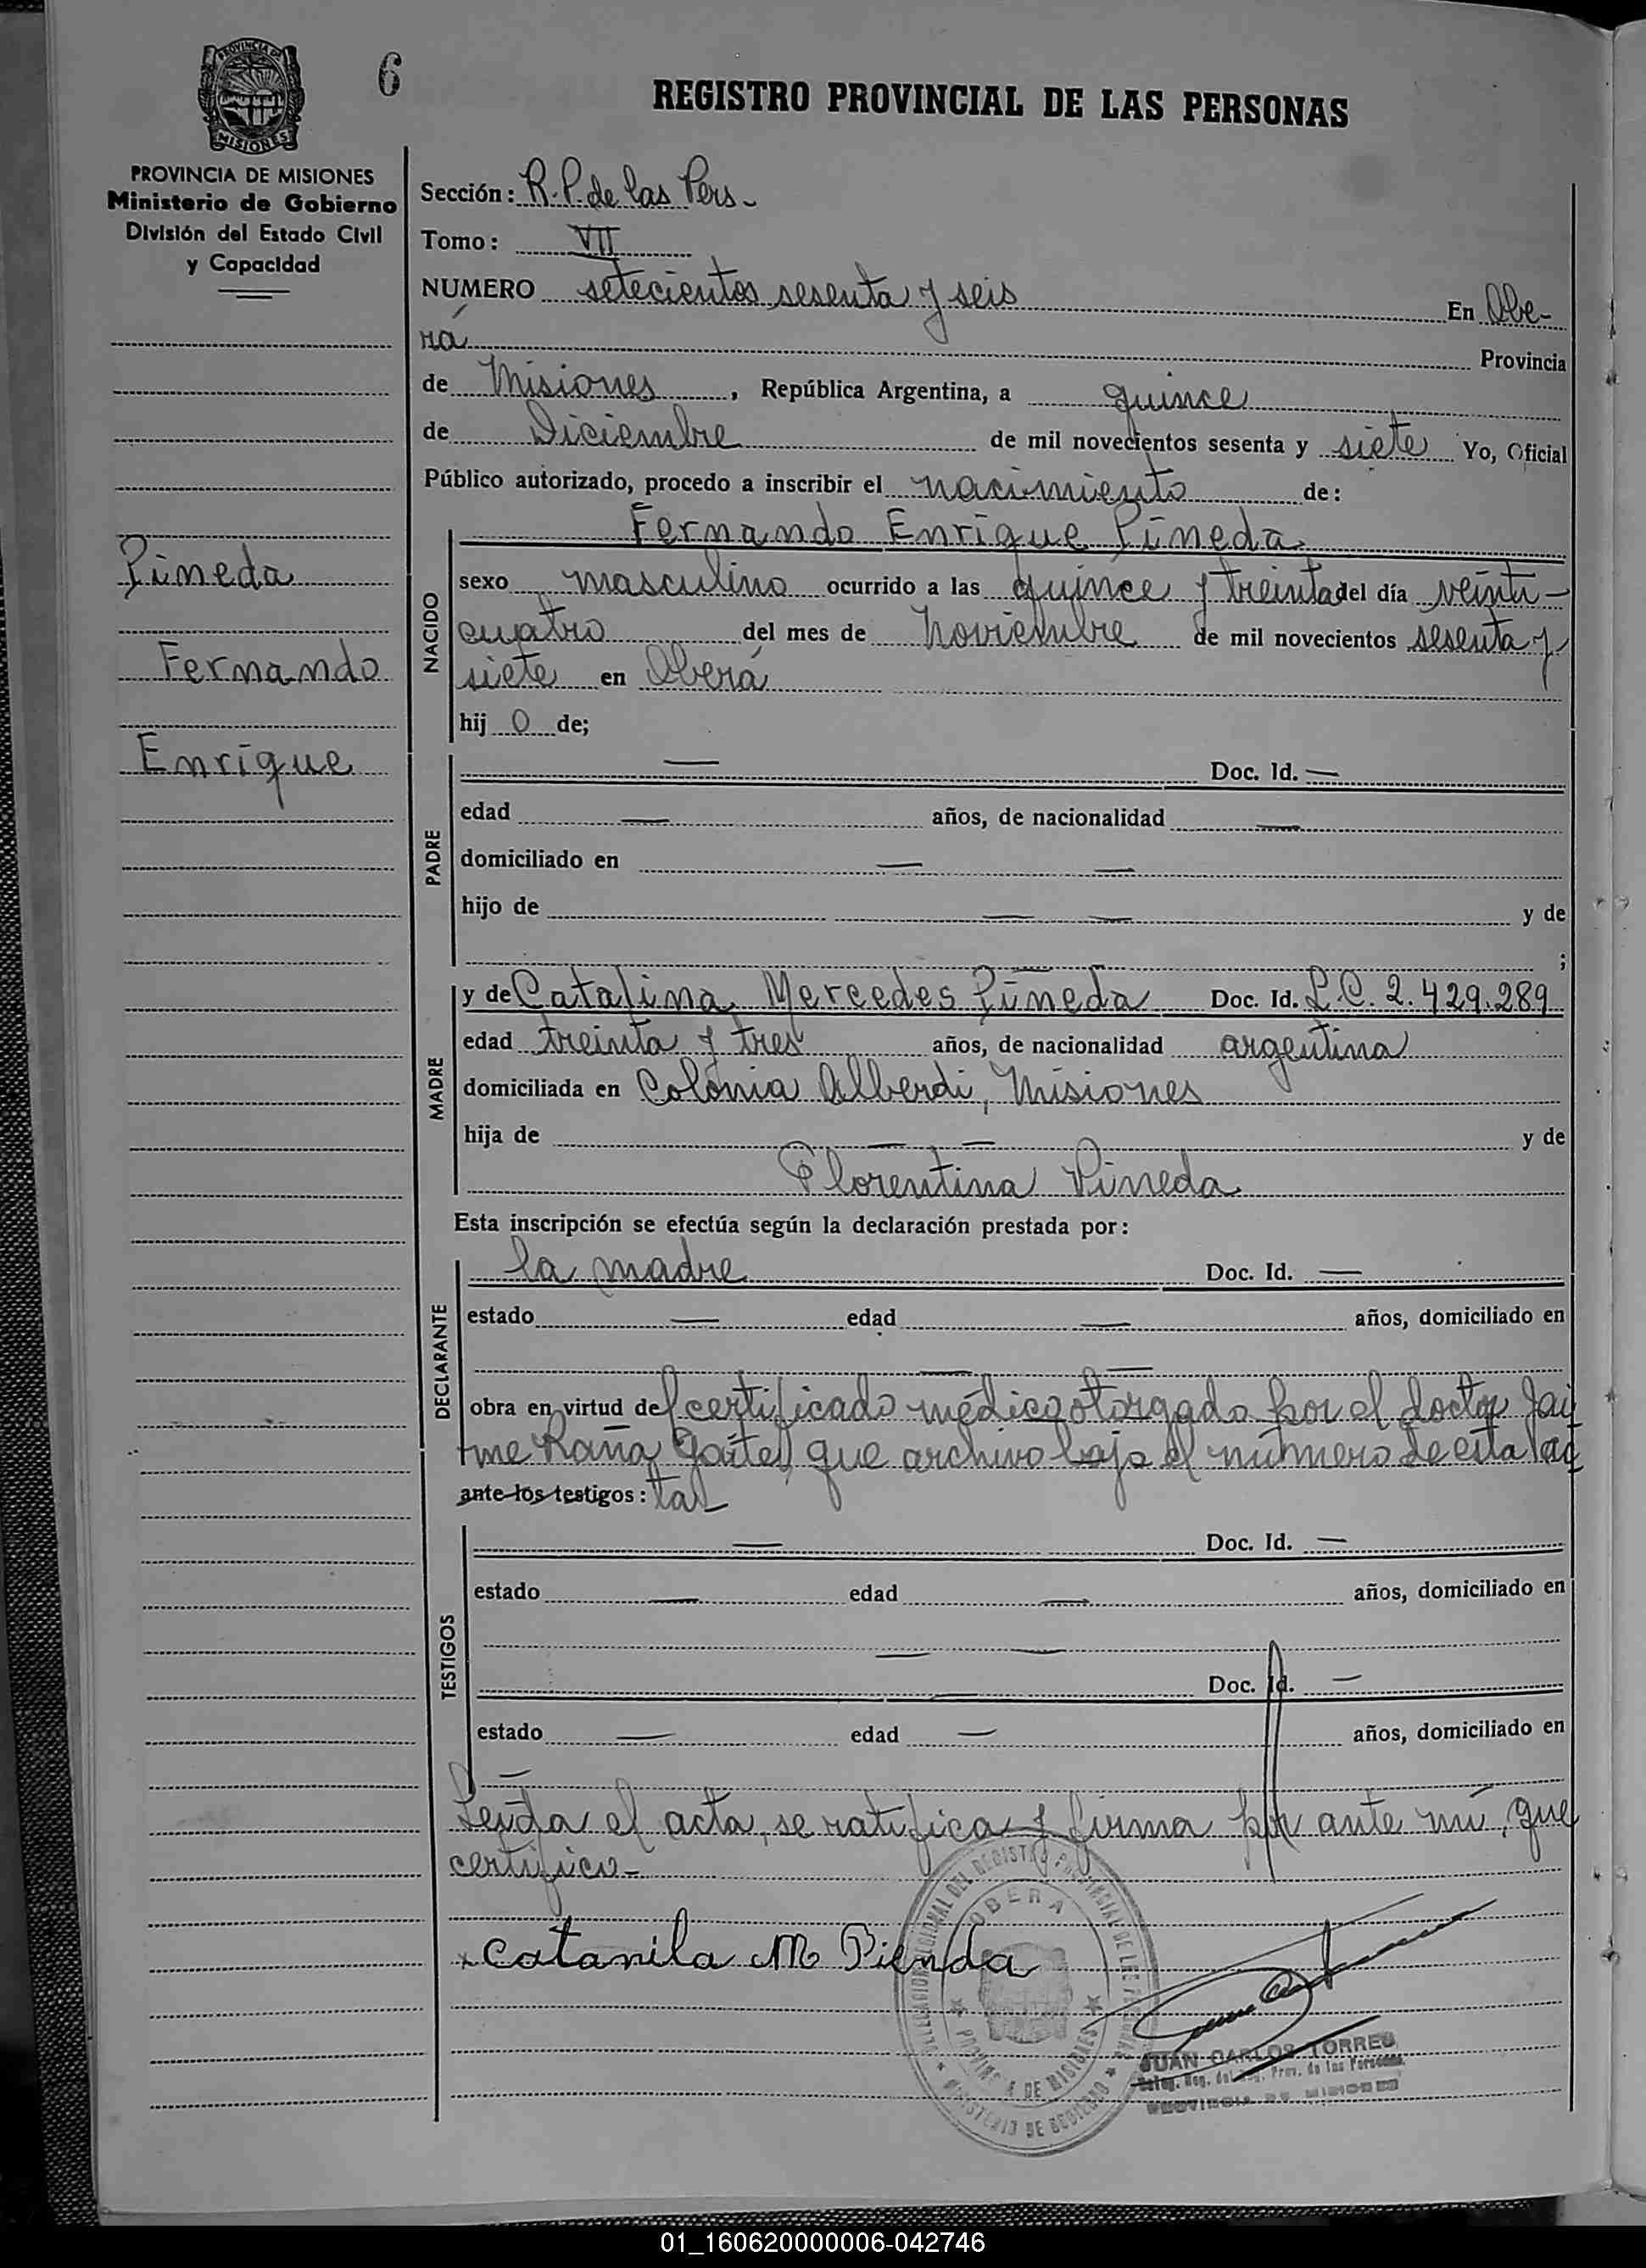 PROVINCIA DE
MISIONES
6
REGISTRO PROVINCIAL DE LAS PERSONAS
PROVINCIA DE MISIONES
Ministerio de Gobierno
División del Estado Civil
y Capacidad
Pineda
Fernando
Enrique
Sección: R.P. de las Pers-
Tomo: VII
NUMERO setecientos sesenta y seis En Obe-
rá Provincia
de Misiones, República Argentina, a quince
de Diciembre de mil novecientos sesenta y siete Yo, Oficial
Público autorizado, procedo a inscribir el nacimiento de:
NACIDO
Fernando Enrique Pineda
sexo masculino ocurrido a las quince y treinta del día veinti-
cuatro del mes de Noviembre de mil novecientos sesenta y
siete en Oberá
hij o de;
PADRE
— Doc. Id. —
edad — años, de nacionalidad —
domiciliado en — —
hijo de — — y de
;
MADRE
y de Catalina Mercedes Pineda Doc. Id. L.C. 2.429.289
edad treinta y tres años, de nacionalidad argentina
domiciliada en Colonia Alberdi, Misiones
hija de — — y de
Florentina Pineda
Esta inscripción se efectúa según la declaración prestada por:
DECLARANTE
la madre Doc. Id. —
estado — edad — años, domiciliado en
— —
obra en virtud del certificado médico otorgado por el doctor Jai
me Raña Gaite, que archivo bajo el número de esta ac
ante los testigos: ta-
TESTIGOS
— Doc. Id. —
estado — edad — años, domiciliado en
— —
— Doc. Id. —
estado — edad — años, domiciliado en
—
Leída el acta, se ratifica y firma por ante mí, que
certifico-
x Catanila M Pienda
DELEGACION REGIONAL DEL REGISTRO PROVINCIAL DE LAS PERSONAS
OBERA
PROVINCIA DE MISIONES
MINISTERIO DE GOBIERNO
JUAN CARLOS TORRES
Deleg. Reg. del Reg. Prov. de las Personas
PROVINCIA DE MISIONES
01_160620000006-042746